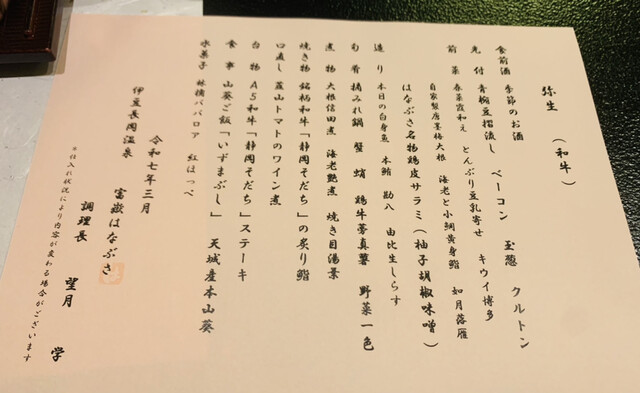 弥生 （和牛）
食前酒 季節のお酒
先付 青豌豆摺流し ベーコン 玉葱 クルトン
前菜 春菜霰和え とんぶり豆乳寄せ キウイ博多
自家製唐墨梅大根 海老と小鯛黄身鮨 如月落雁
はなぶさ名物鶏皮サラミ（柚子胡椒味噌）
造り 本日の白身魚 本鮪 勘八 由比生しらす
旬肴 摘みれ鍋 蟹 蛸 鶏牛蒡真薯 野菜一色
煮物 大根信田煮 海老艶煮 焼き目湯葉
焼き物 銘柄和牛「静岡そだち」の炙り鮨
口直し 韮山トマトのワイン煮
台物 A5和牛「静岡そだち」ステーキ
食事 山葵ご飯「いずまぶし」 天城産本山葵
水菓子 林檎ババロア 紅ほっぺ
令和七年三月
伊豆長岡温泉 富嶽はなぶさ
調理長 望月 学
※仕入れ状況により内容が変わる場合がございます